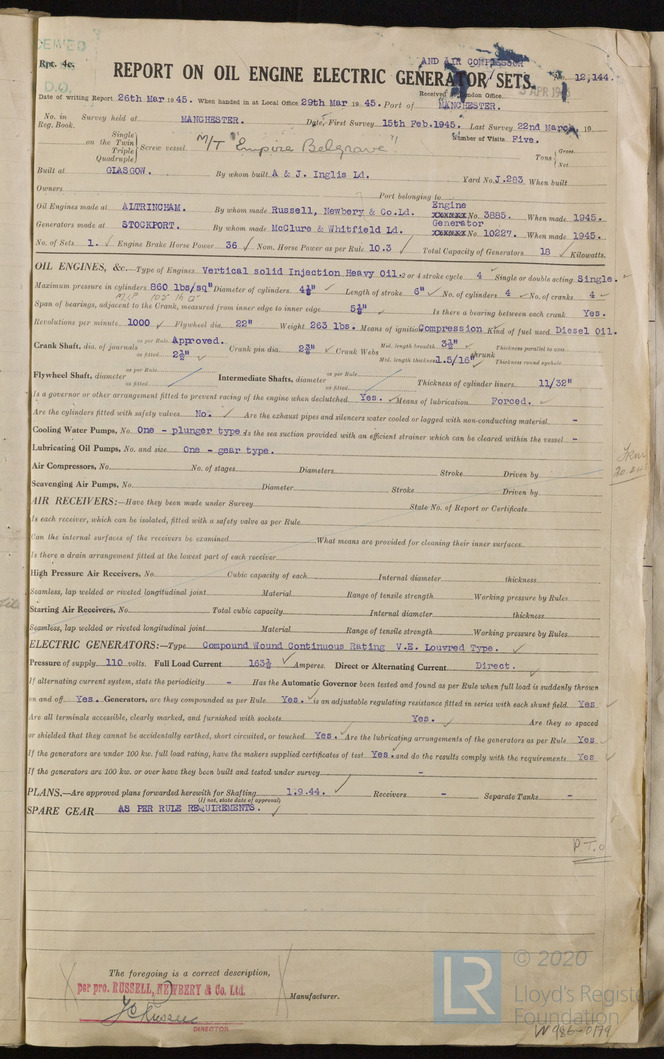 Rpt. 4c.
D.O.
AND AIR COMPRESSOR
REPORT ON OIL ENGINE ELECTRIC GENERATOR SETS.
No. 12,144.
Received London Office
APR 19
Date of writing Report 26th Mar 1945. When handed in at Local Office 29th Mar 1945. Port of MANCHESTER.
No. in Reg. Book. Survey held at MANCHESTER. Date, First Survey 15th Feb.1945. Last Survey 22nd March, 19
Number of Visits Five.
Single
on the Twin
Triple
Quadruple
Screw vessel M/T "Empire Belgrave"
Tons Gross
Net
Built at GLASGOW. By whom built A & J. Inglis Ld. Yard No. J.283 When built
Owners Port belonging to
Oil Engines made at ALTRINCHAM. By whom made Russell, Newbery & Co.Ld. Engine No. 3885. When made 1945.
Generators made at STOCKPORT. By whom made McClure & Whitfield Ld. Generator No. 10227. When made 1945.
No. of Sets 1. Engine Brake Horse Power 36 Nom. Horse Power as per Rule 10.3 Total Capacity of Generators 18 Kilowatts.
OIL ENGINES, &c.—Type of Engines Vertical solid Injection Heavy Oil. 2 or 4 stroke cycle 4 Single or double acting Single.
Maximum pressure in cylinders 860 lbs/sq" Diameter of cylinders 4⅛" Length of stroke 6" No. of cylinders 4 No. of cranks 4
Span of bearings, adjacent to the Crank, measured from inner edge to inner edge 5⅛" Is there a bearing between each crank Yes.
Revolutions per minute 1000 Flywheel dia. 22" Weight 263 lbs. Means of ignition Compression Kind of fuel used Diesel Oil.
Crank Shaft, dia. of journals as per Rule Approved.
as fitted 2¾" Crank pin dia. 2⅜" Crank Webs Mid. length breadth 3½" Thickness parallel to axis
Mid. length thickness 1.5/16" shrunk Thickness round eyehole
Flywheel Shaft, diameter as per Rule
as fitted Intermediate Shafts, diameter as per Rule
as fitted Thickness of cylinder liners 11/32"
Is a governor or other arrangement fitted to prevent racing of the engine when declutched Yes. Means of lubrication Forced.
Are the cylinders fitted with safety valves No. Are the exhaust pipes and silencers water cooled or lagged with non-conducting material -
Cooling Water Pumps, No. One - plunger type Is the sea suction provided with an efficient strainer which can be cleared within the vessel -
Lubricating Oil Pumps, No. and size One - gear type.
Air Compressors, No. No. of stages Diameters Stroke Driven by
Scavenging Air Pumps, No. Diameter Stroke Driven by
AIR RECEIVERS:—Have they been made under Survey State No. of Report or Certificate
Is each receiver, which can be isolated, fitted with a safety valve as per Rule
Can the internal surfaces of the receivers be examined What means are provided for cleaning their inner surfaces
Is there a drain arrangement fitted at the lowest part of each receiver
High Pressure Air Receivers, No. Cubic capacity of each Internal diameter thickness
Seamless, lap welded or riveted longitudinal joint Material Range of tensile strength Working pressure by Rules
Starting Air Receivers, No. Total cubic capacity Internal diameter thickness
Seamless, lap welded or riveted longitudinal joint Material Range of tensile strength Working pressure by Rules
ELECTRIC GENERATORS:—Type Compound Wound Continuous Rating V.E. Louvred Type.
Pressure of supply 110 volts. Full Load Current 163½ Amperes. Direct or Alternating Current Direct.
If alternating current system, state the periodicity - Has the Automatic Governor been tested and found as per Rule when full load is suddenly thrown
on and off Yes. Generators, are they compounded as per Rule Yes. is an adjustable regulating resistance fitted in series with each shunt field Yes
Are all terminals accessible, clearly marked, and furnished with sockets Yes. Are they so spaced
or shielded that they cannot be accidentally earthed, short circuited, or touched Yes. Are the lubricating arrangements of the generators as per Rule Yes
If the generators are under 100 kw. full load rating, have the makers supplied certificates of test Yes. and do the results comply with the requirements Yes
If the generators are 100 kw. or over have they been built and tested under survey -
PLANS.—Are approved plans forwarded herewith for Shafting 1.9.44. Receivers - Separate Tanks -
(If not, state date of approval)
SPARE GEAR AS PER RULE REQUIREMENTS.
P.T.O
The foregoing is a correct description,
per pro. RUSSELL, NEWBERY & Co. Ltd.
Manufacturer.
DIRECTOR
LR
© 2020
Lloyd's Register
Foundation
W986-0179